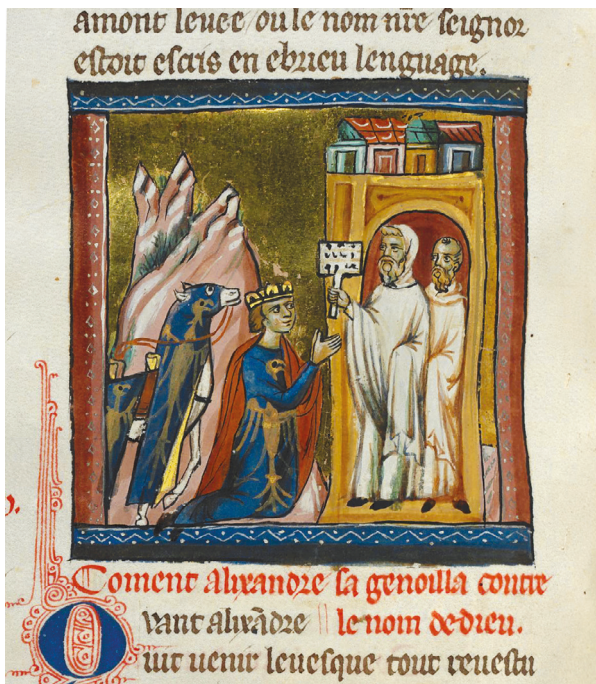 amont leuee ou le nom nr̄e seignor
estoit escris en ebrieu lenguage.
Coment alixandre sa genoilla contre
uant alixādre le nom de dieu.
O uit uenir leuesque tout reuestu